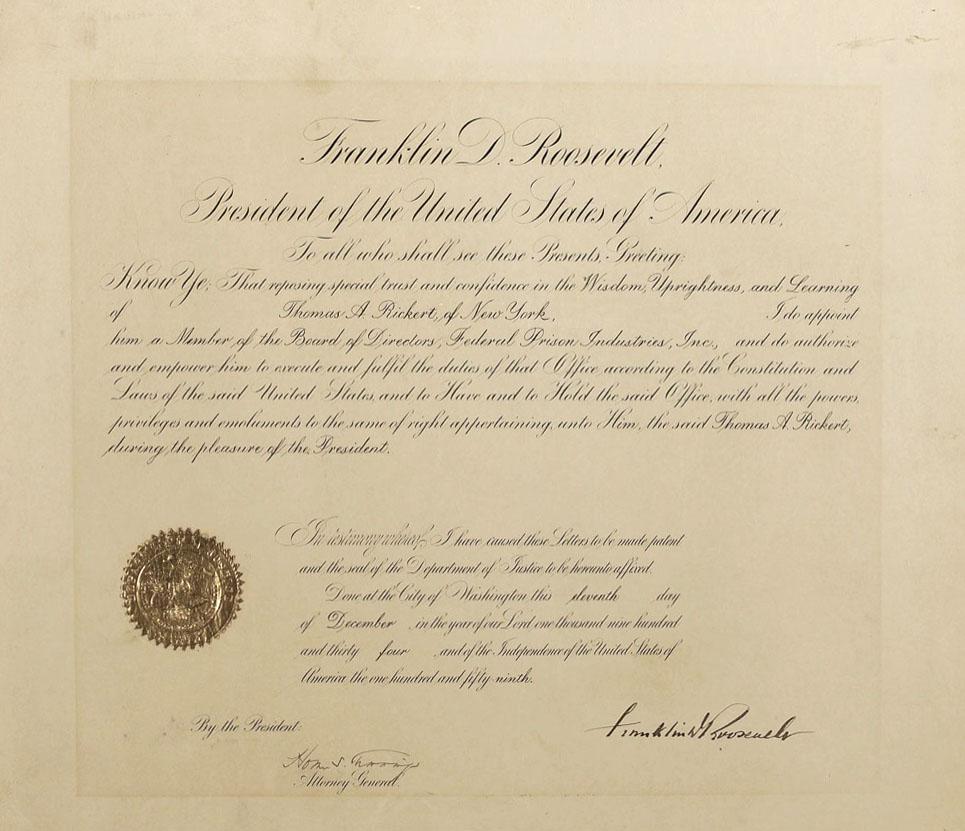 Franklin D. Roosevelt,
President of the United States of America,
To all who shall see these Presents, Greeting:
Know Ye; That reposing special trust and confidence in the Wisdom, Uprightness, and Learning
of Thomas A. Rickert, of New York, I do appoint
him a Member of the Board of Directors, Federal Prison Industries, Inc., and do authorize
and empower him to execute and fulfil the duties of that Office according to the Constitution and
Laws of the said United States, and to Have and to Hold the said Office, with all the powers,
privileges and emoluments to the same of right appertaining, unto Him, the said Thomas A. Rickert,
during the pleasure of the President.
In testimony whereof, I have caused these Letters to be made patent
and the seal of the Department of Justice to be hereunto affixed.
Done at the City of Washington this eleventh day
of December, in the year of our Lord one thousand nine hundred
and thirty four, and of the Independence of the United States of
America the one hundred and fifty-ninth.
By the President:
Franklin D Roosevelt
Attorney General.